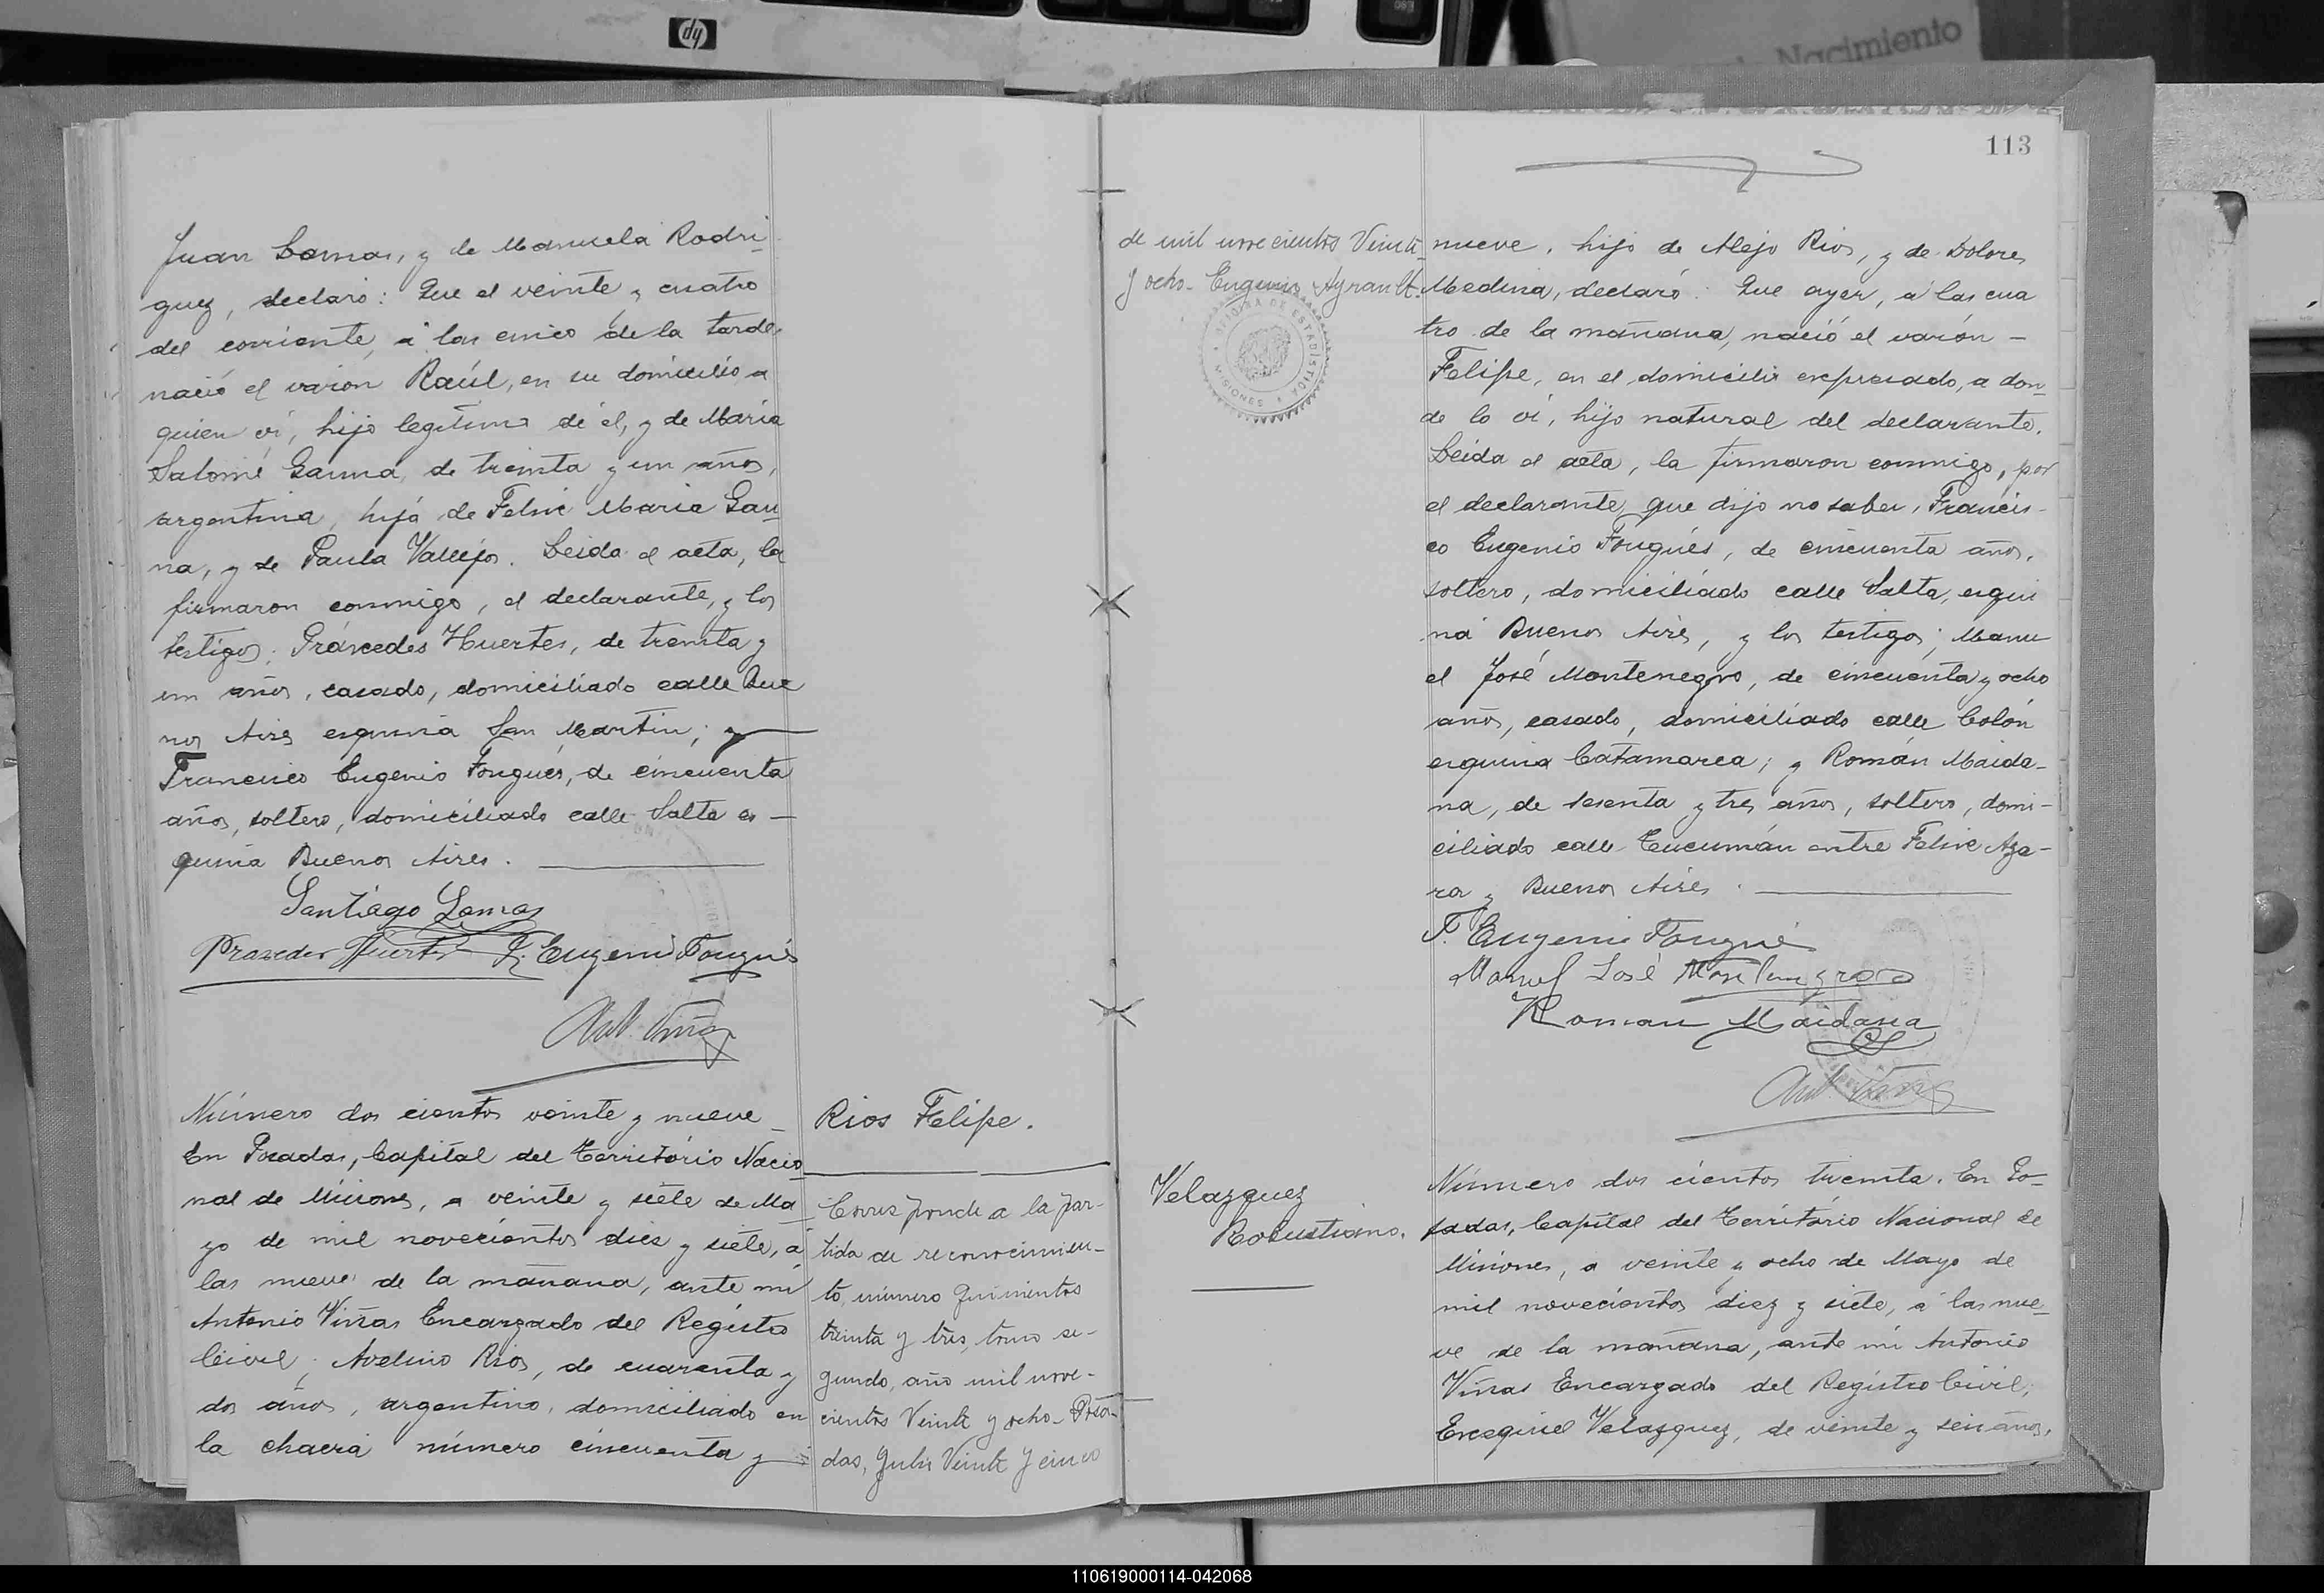 hp
Nacimiento
Juan Lamas, y de Manuela Rodri-
guez, declaró: Que el veinte y cuatro
del corriente, á las cinco de la tarde,
nació el varon Raúl, en su domicilio a
quien ví, hijo legitimo de él, y de María
Salomé Gauna, de treinta y un años,
argentina, hija de Felix Maria Gau-
na, y de Paula Vallejos. Leida el acta, la
firmaron conmigo, el declarante, y los
testigos; Práxedes Huertes, de treinta y
un años, casado, domiciliado calle Bue
nos Aires esquina San Martin; y
Francisco Eugenio Fougués, de cincuenta
años, soltero, domiciliado calle Salta es-
quina Buenos Aires.
Santiago Lamas
Praxedes Huertes F. Eugenio Fougués
Ant. Viñas
Número dos cientos veinte y nueve_
En Posadas, Capital del Território Nacio
nal de Misiones, a veinte y siete de Ma
yo de mil novecientos diez y siete, á
las nueve de la mañana, ante mí
Antonio Viñas Encargado del Registro
Civil; Avelino Rios, de cuarenta y
dos años, argentino, domiciliado en
la chacra número cincuenta y
Rios Felipe.
Corresponde a la par-
tida de reconocimien-
to, número quinientos
treinta y tres, tomo se-
gundo, año mil nove-
cientos Veinte y ocho_ Posa-
das, Julio Veinte y cinco
113
de mil novecientos Veinte
y ocho_ Eugenio Ayrault.
OFICINA DE ESTADISTICA
MISIONES
nueve, hijo de Alejo Rios, y de Dolores
Medina, declaró: Que ayer, á las cua
tro de la mañana, nació el varón -
Felipe, en el domicilio expresado, a don-
de lo ví, hijo natural del declarante.
Leida el acta, la firmaron conmigo, por
el declarante, que dijo no saber, Francis-
co Eugenio Fougués, de cincuenta años,
soltero, domiciliado calle Salta, esqui
na Buenos Aires, y los testigos; Manu
el José Montenegro, de cincuenta y ocho
años, casado, domiciliado calle Colón
esquina Catamarca; y Román Maida-
na, de sesenta y tres años, soltero, domi-
ciliado calle Tucumán entre Felix Aza-
ra y Buenos Aires.
F. Eugenio Fougué
Manuel José Montenegro
Roman Maidana
Ant. Viñas
Velazquez
Robustiano.
Número dos cientos treinta. En Po-
sadas, Capital del Território Nacional de
Misiones, a veinte y ocho de Mayo de
mil novecientos diez y siete, á las nue-
ve de la mañana, ante mí Antonio
Viñas Encargado del Registro Civil;
Exequiel Velazquez, de veinte y seis años,
110619000114-042068